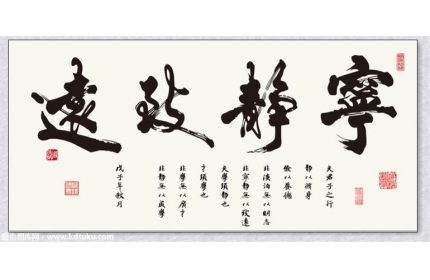 寧靜致遠
夫君子之行
靜以修身
儉以養德
非澹泊無以明志
非寧靜無以致遠
夫學須靜也
才須學也
非學無以廣才
非靜無以成學
戊子年秋月
www.kdtuku.com